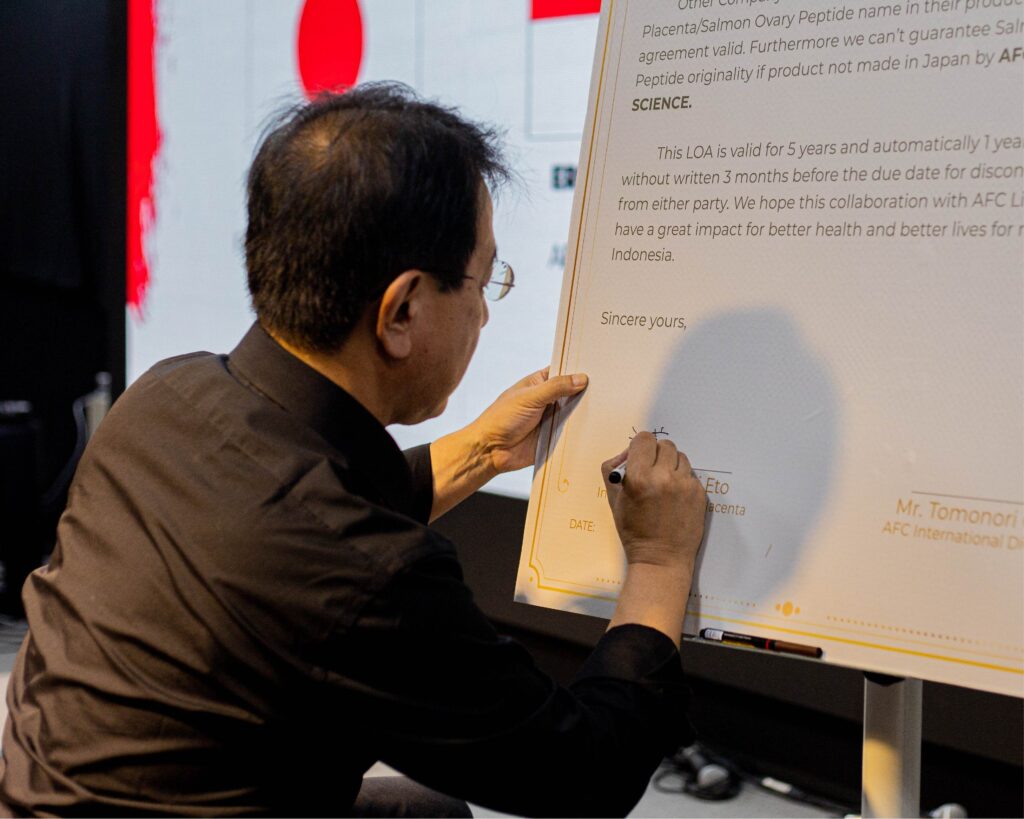 Other Company
Placenta/Salmon Ovary Peptide name in their produc
agreement valid. Furthermore we can't guarantee Sal
Peptide originality if product not made in Japan by AF
SCIENCE.
This LOA is valid for 5 years and automatically 1 yea
without written 3 months before the due date for discon
from either party. We hope this collaboration with AFC Li
have a great impact for better health and better lives for
Indonesia.
Sincere yours,
Eto
lacenta
DATE:
Mr. Tomonori
AFC International Di